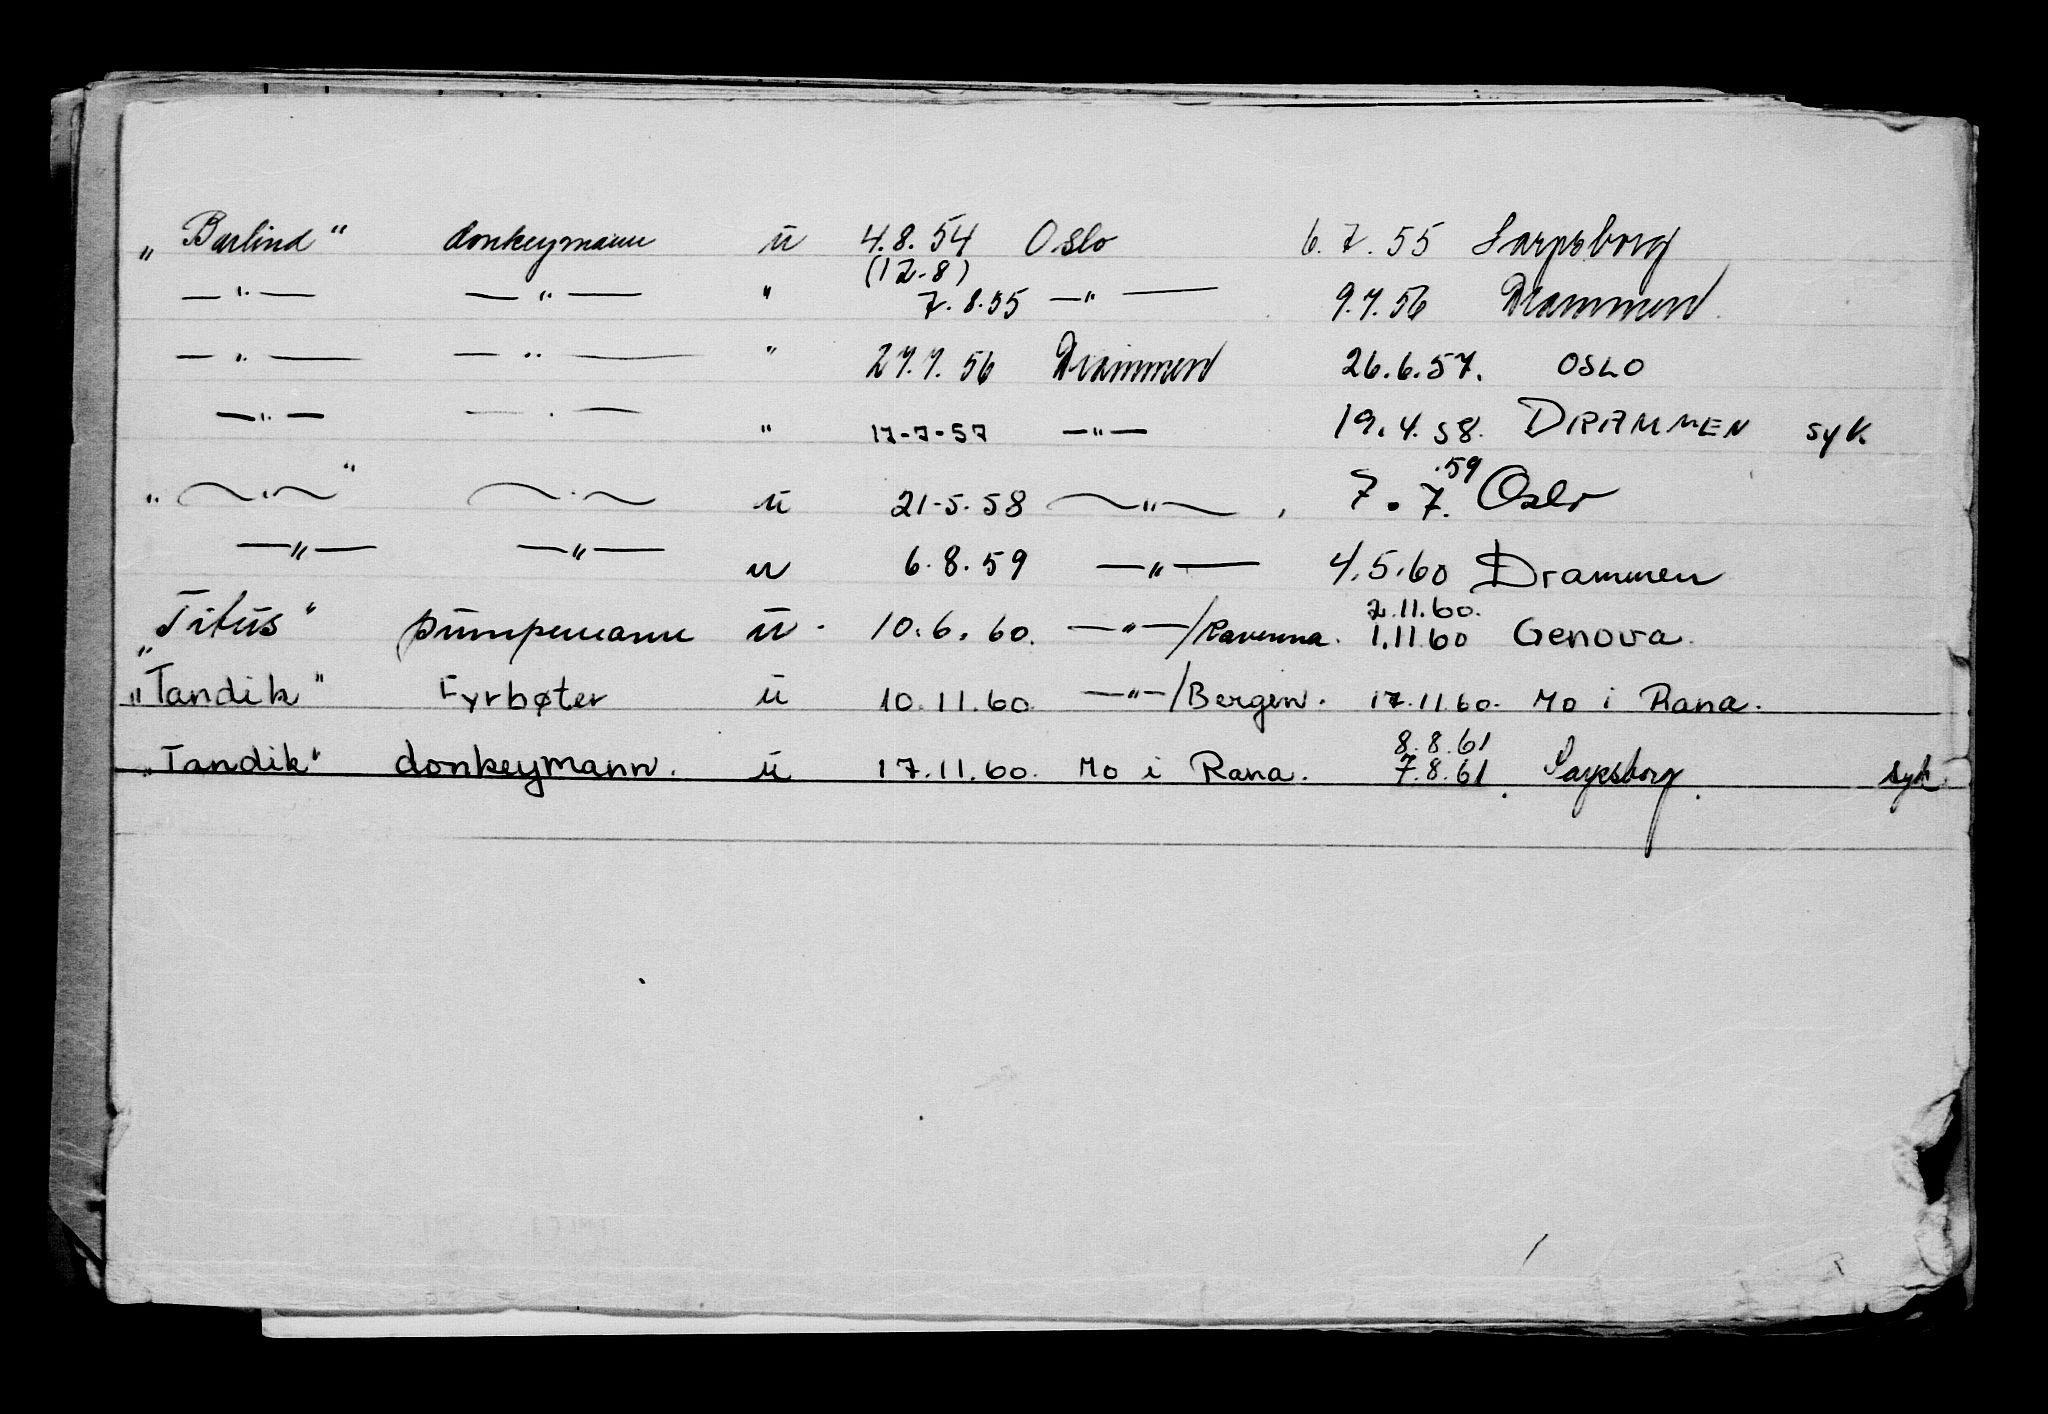 „Barlind" donkeymann u 4.8.54 Oslo 6.7.55 Sarpsborg
(12-8)
—"— —"— " 7.8.55 —"— 9.7.56 Drammen
—"— —"— " 27.7.56 Drammen 26.6.57. OSLO
—"— —"— " 17-7-57 —"— 19.4.58. DRAMMEN syk
" —"— " —"— u 21-5.58 —"— 7.7.59 Oslo
—"— —"— u 6.8.59 —"— 4.5.60 Drammen
2.11.60.
„Titus" pumpemann u. 10.6.60. —"—/Ravenna. 1.11.60 Genova.
„Tandik" Fyrbøter u 10.11.60 —"—/Bergen. 17.11.60. Mo i Rana.
8.8.61
„Tandik" donkeymann. u 17.11.60. Mo i Rana. 7.8.61. Sarpsborg. syk